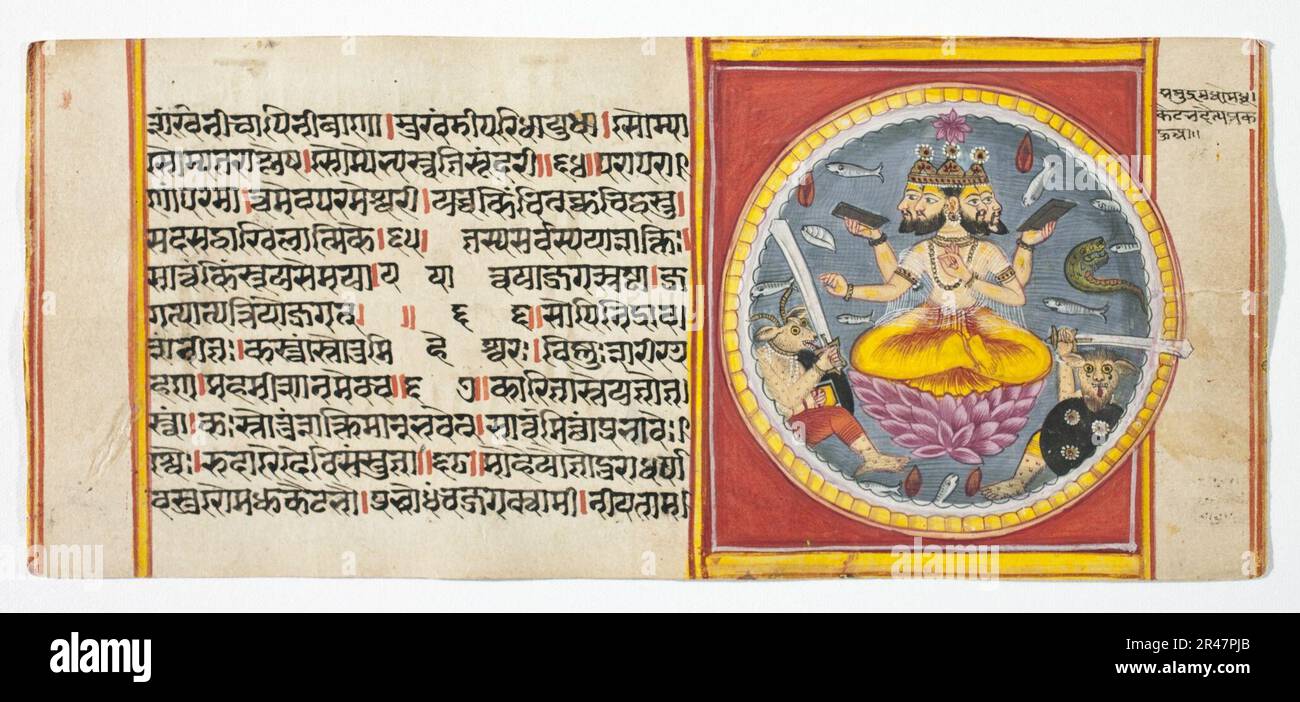 शंखिनीचापिनीबाणा।भुशुंडीपरिघायुधा।सौम्या
सौम्यतराशेष।सौम्येभ्यस्त्वतिसुंदरी॥६४॥परापरा
णांपरमा।त्वमेवपरमेश्वरी।यच्चकिंचित्क्वचिद्वस्तु।
सदसद्वाखिलात्मिके।६५।तस्यसर्वस्ययाशक्तिः
सात्वंकिंस्तूयसेमया।य या त्वयाजगत्स्रष्टा।ज
गत्पात्यत्तियोजगत्।॥६६॥सोपिनिद्राव
शंनीतः।कस्त्वांस्तोतुमिहेश्वरः।विष्णुःशरीरग्र
हण।महमीशानमेवच॥६७॥कारितास्तेयतोत
स्त्वां।कःस्तोतुंशक्तिमान्भवेत्।सात्वमित्थंप्रभावैः।
स्वैः।रुदारैर्देविसंस्तुता॥६८॥मोहयैतौदुराधर्षा
वसुरौमधुकैटभौ।प्रबोधंचजगत्स्वामी।नीयताम
alamy
Image ID: 2R47PJB
www.alamy.com